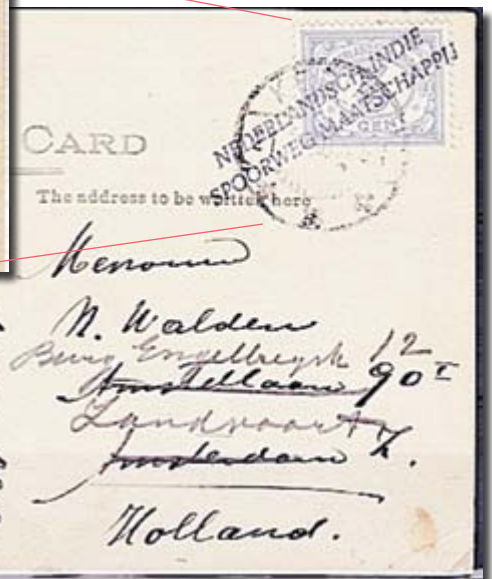 NEDERLANDSCH INDIE
SPOORWEG MAATSCHAPPIJ
CENT
CARD
The address to be written here
Mevrouw
N. Walden
Burg Engelbregsk 12
Amstellaan 90 I
Zandvoort
Amsterdam Z.
Holland.